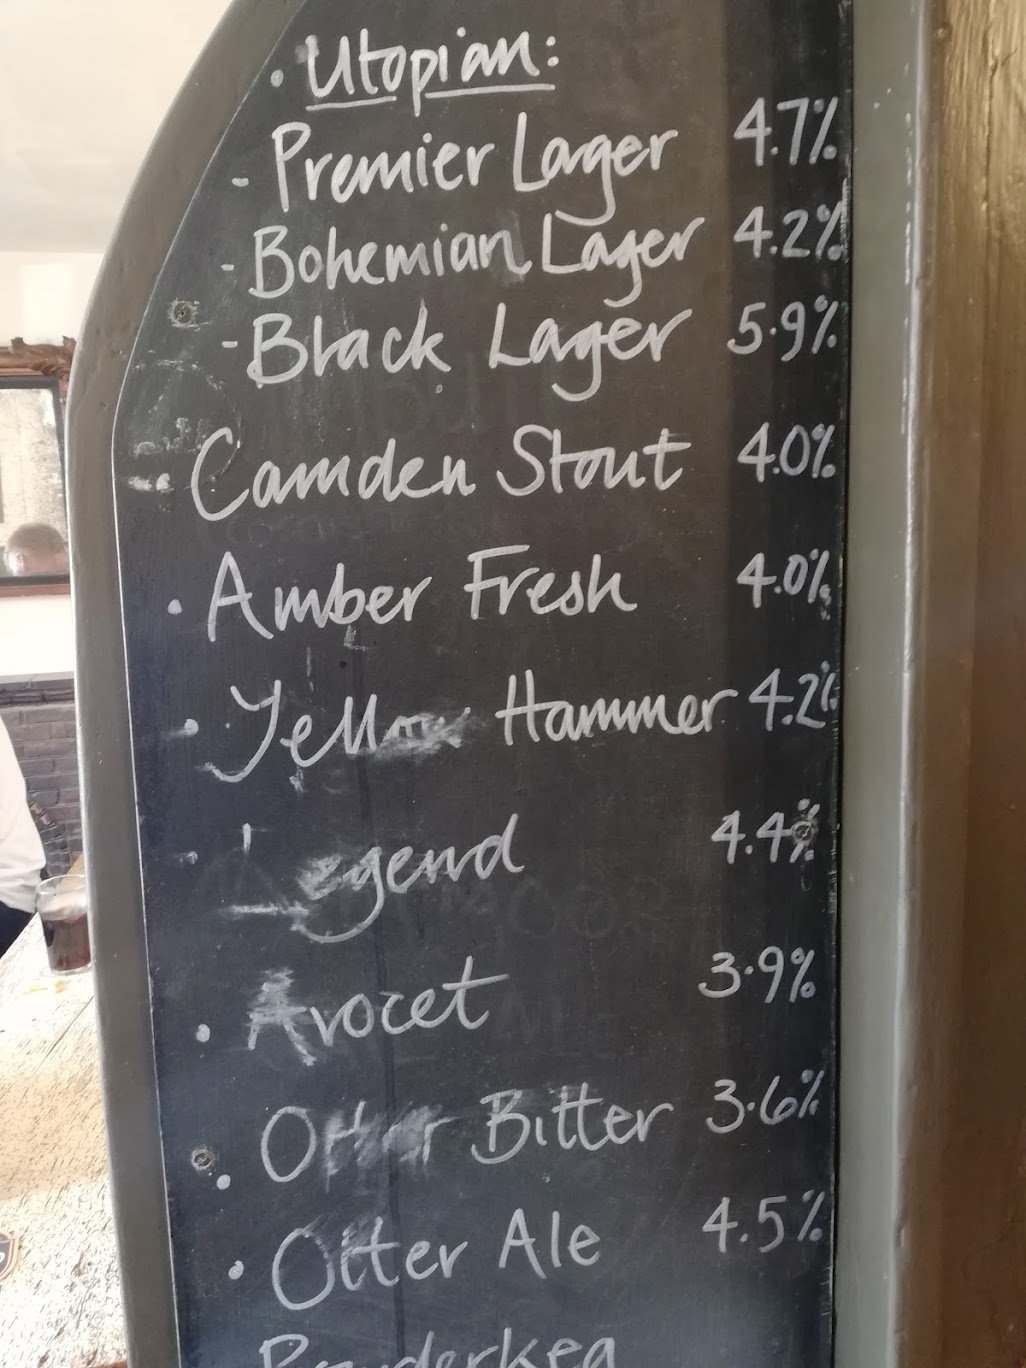 • Utopian:
- Premier Lager 4.7%
- Bohemian Lager 4.2%
- Black Lager 5.9%
• Camden Stout 4.0%
• Amber Fresh 4.0%
• Yellow Hammer 4.2%
• Legend 4.4%
• Avocet 3.9%
• Otter Bitter 3.6%
• Otter Ale 4.5%